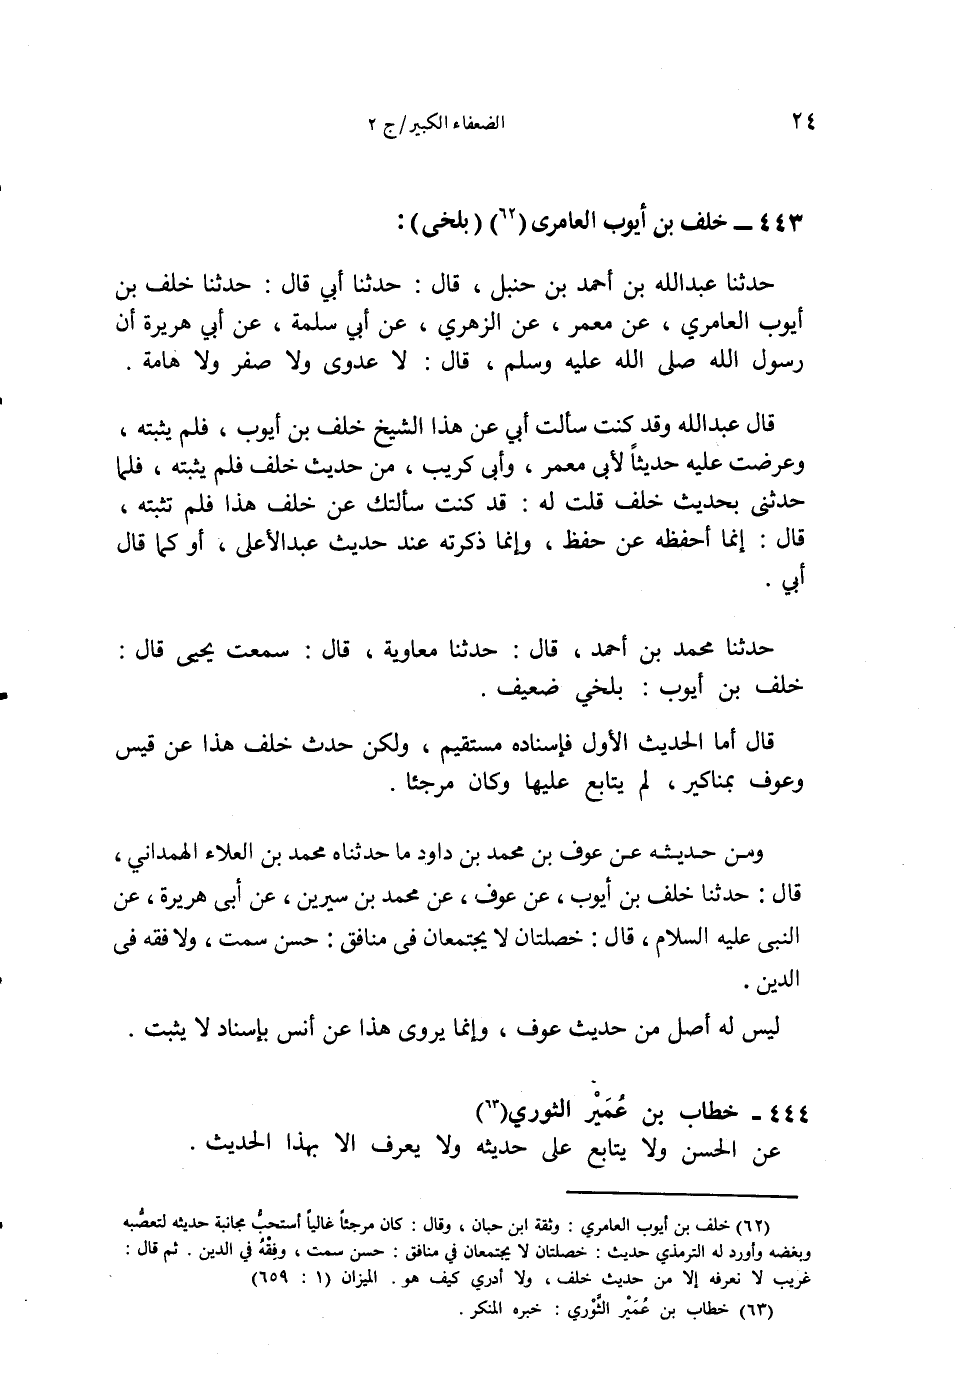 ٢٤
الضعفاء الكبير/ج ٢
٤٤٣ ــ خلف بن أيوب العامرى(٦٢) (بلخى):
حدثنا عبدالله بن أحمد بن حنبل ، قال : حدثنا أبي قال : حدثنا خلف بن
أيوب العامري ، عن معمر ، عن الزهري ، عن أبي سلمة ، عن أبي هريرة أن
رسول الله صلى الله عليه وسلم ، قال : لا عدوى ولا صفر ولا هامة .
قال عبدالله وقد كنت سألت أبي عن هذا الشيخ خلف بن أيوب ، فلم يثبته ،
وعرضت عليه حديثاً لأبى معمر ، وأبى كريب ، من حديث خلف فلم يثبته ، فلما
حدثنى بحديث خلف قلت له : قد كنت سألتك عن خلف هذا فلم تثبته ،
قال : إنما أحفظه عن حفظ ، وإنما ذكرته عند حديث عبدالأعلى ، أو كما قال
أبي .
حدثنا محمد بن أحمد ، قال : حدثنا معاوية ، قال : سمعت يحيى قال :
خلف بن أيوب : بلخي ضعيف .
قال أما الحديث الأول فإسناده مستقيم ، ولكن حدث خلف هذا عن قيس
وعوف بمناكير ، لم يتابع عليها وكان مرجئا .
ومـن حـديـثـه عـن عوف بن محمد بن داود ما حدثناه محمد بن العلاء الهمداني ،
قال : حدثنا خلف بن أيوب ، عن عوف ، عن محمد بن سيرين ، عن أبى هريرة ، عن
النبى عليه السلام ، قال : خصلتان لا يجتمعان فى منافق : حسن سمت ، ولا فقه فى
الدين .
ليس له أصل من حديث عوف ، وإنما يروى هذا عن أنس بإسناد لا يثبت .
٤٤٤ ـ خطاب بن عُمَيْر الثوري(٦٣)
عن الحسن ولا يتابع على حديثه ولا يعرف الا بهذا الحديث .
(٦٢) خلف بن أيوب العامري : وثقة ابن حبان ، وقال : كان مرجئاً غالياً أستحبُّ مجانبة حديثه لتعصُّبه
وبغضه وأورد له الترمذي حديث : خصلتان لا يجتمعان في منافق : حسن سمت ، وفِقْهُ في الدين . ثم قال :
غريب لا نعرفه إلا من حديث خلف ، ولا أدري كيف هو . الميزان (١ : ٦٥٩)
(٦٣) خطاب بن عُمَيْر الثَّوْري : خبره المنكر .